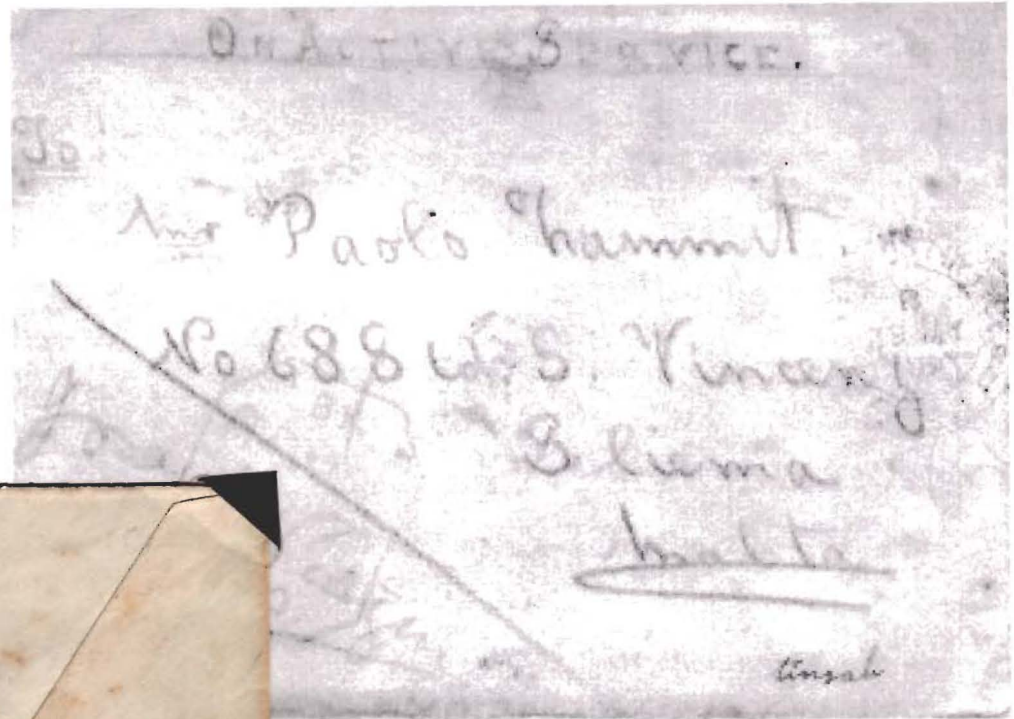 On Active Service.
To
Mr Paolo Zammit.
No 688 S. Vincenzo
Sliema
Malta